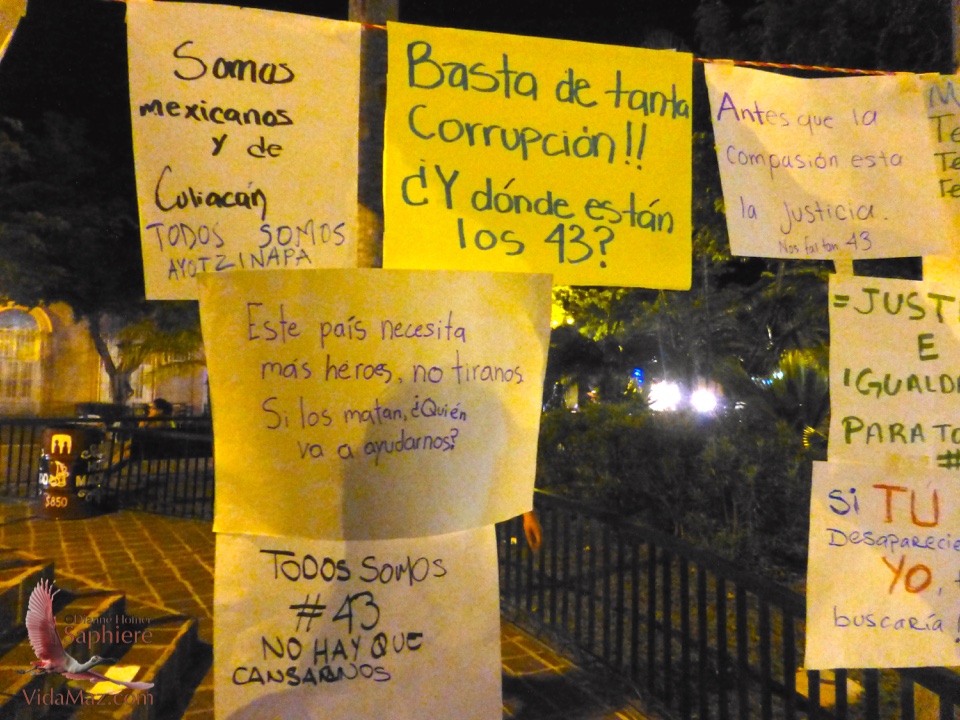 Somos
mexicanos
y de
Culiacán
TODOS SOMOS
AYOTZINAPA
Basta de tanta
Corrupción!!
¿Y dónde están
los 43?
Antes que la
compasión esta
la justicia.
Nos faltan 43
M
Te
Te
Te
Este país necesita
más héroes, no tiranos.
Si los matan, ¿Quién
va a ayudarnos?
=JUSTI
E
IGUALDA
PARA TO
#
TODOS SOMOS
#43
NO HAY QUE
CANSARNOS
Si TÚ
Desaparecie
YO,
buscaría!
$850
©Dianne Hofner
Saphiere
VidaMaz.com